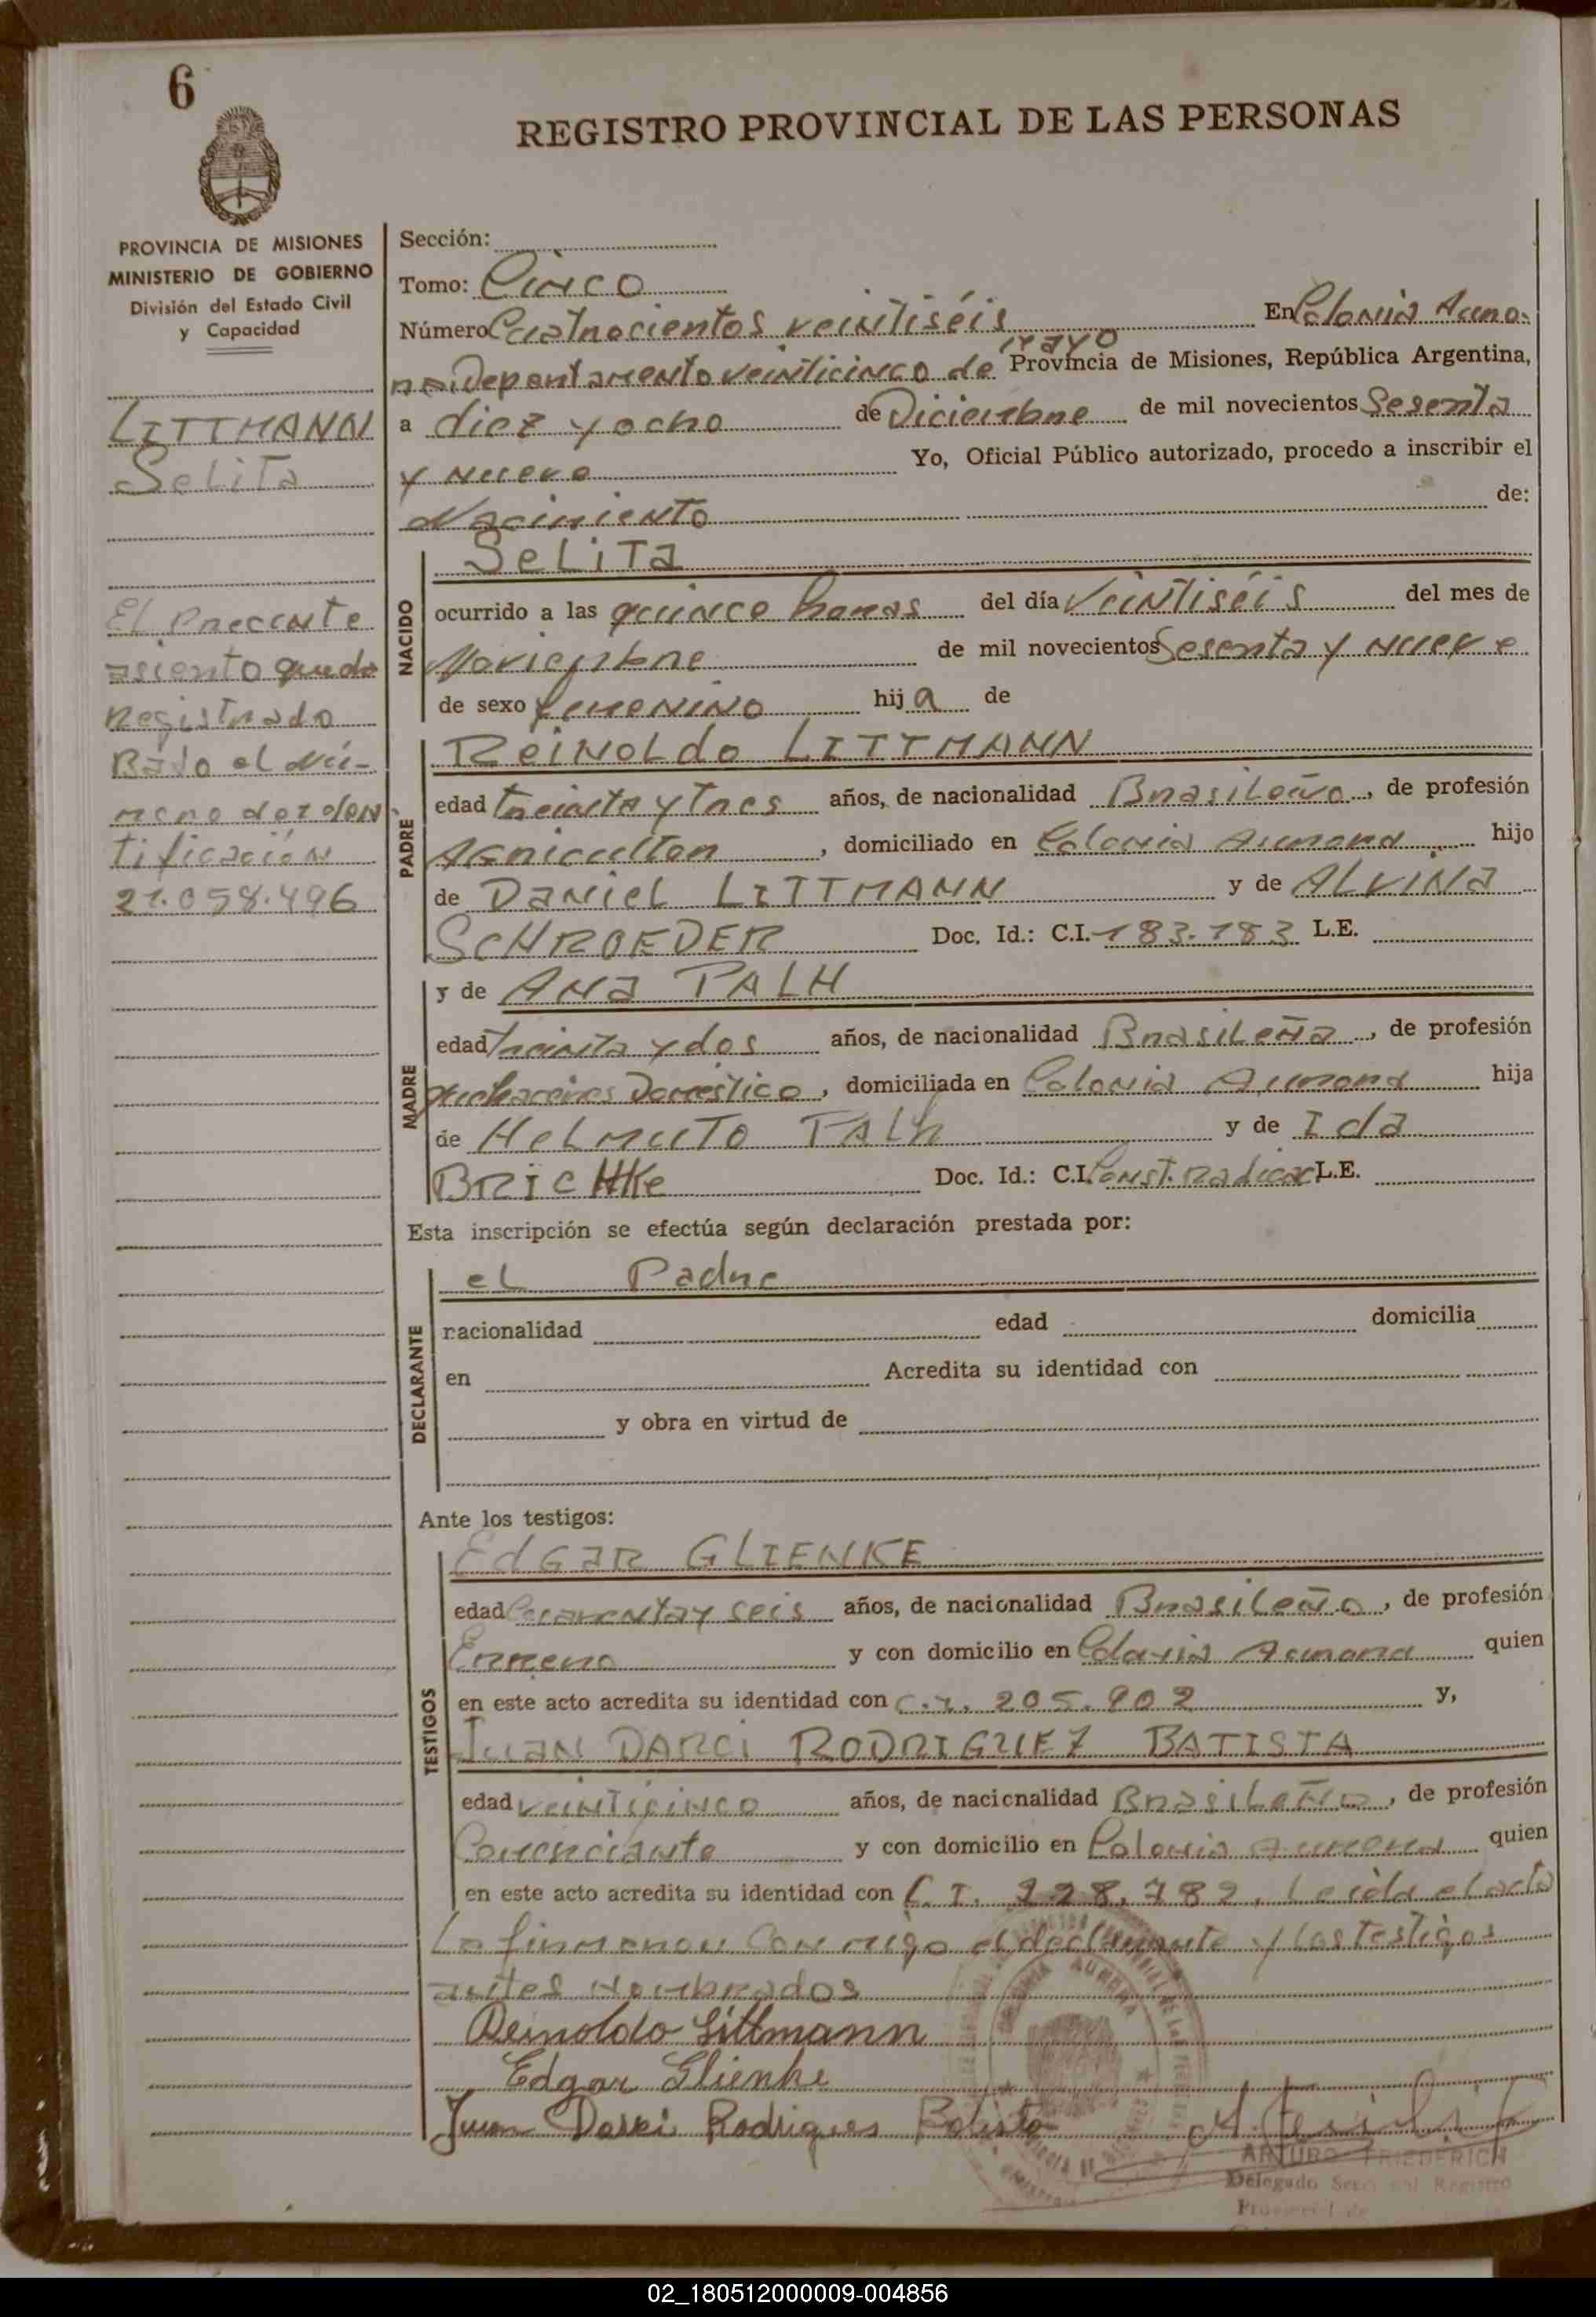 6
REGISTRO PROVINCIAL DE LAS PERSONAS
PROVINCIA DE MISIONES
MINISTERIO DE GOBIERNO
División del Estado Civil
y Capacidad
LITTMANN
Selita
El Presente
asiento queda
Registrado
Bajo el Nú-
mero de Iden
tificación
21.058.496
Sección:
Tomo: Cinco
Número Cuatrocientos veintiséis En Colonia Auro-
ra Departamento veinticinco de mayo Provincia de Misiones, República Argentina,
a diez y ocho de Diciembre de mil novecientos Sesenta
y nueve Yo, Oficial Público autorizado, procedo a inscribir el
Nacimiento de:
NACIDO
Selita
ocurrido a las quince horas del día Veintiséis del mes de
Noviembre de mil novecientos Sesenta y nueve
de sexo femenino hija de
PADRE
Reinoldo LITTMANN
edad treinta y tres años, de nacionalidad Brasileño, de profesión
Agricultor, domiciliado en Colonia Aurora hijo
de Daniel LITTMANN y de ALVINA
SCHROEDER Doc. Id.: C.I. 183.183 L.E.
MADRE
y de Ana TALH
edad treinta y dos años, de nacionalidad Brasileña, de profesión
quehaceres Doméstico, domiciliada en Colonia Aurora hija
de Helmuto TALh y de Ida
Doc. Id.: C.I. Const. Radicac L.E.
Esta inscripción se efectúa según declaración prestada por:
DECLARANTE
el Padre
nacionalidad edad domicilia
en Acredita su identidad con
y obra en virtud de
Ante los testigos:
TESTIGOS
EdGaR GLIENKE
edad Cuarenta y seis años, de nacionalidad Brasileño, de profesión
y con domicilio en Colonia Aurora quien
en este acto acredita su identidad con C.I. 205.902 y,
JuaN DARCi RODRIGUEZ BATISTA
edad veinticinco años, de nacionalidad Brasileño, de profesión
Comerciante y con domicilio en Colonia Aurora quien
en este acto acredita su identidad con C.I. 228.782. Leída el acta
La firmaron Con migo el declarante y los testigos
antes Nombrados
Reinoldo Littmann
Edgar Glienke
Juan Darci Rodrigues Batista
ARTURO FRIEDERICH
Delegado Registro
Provincial de
COLONIA AURORA
02_180512000009-004856